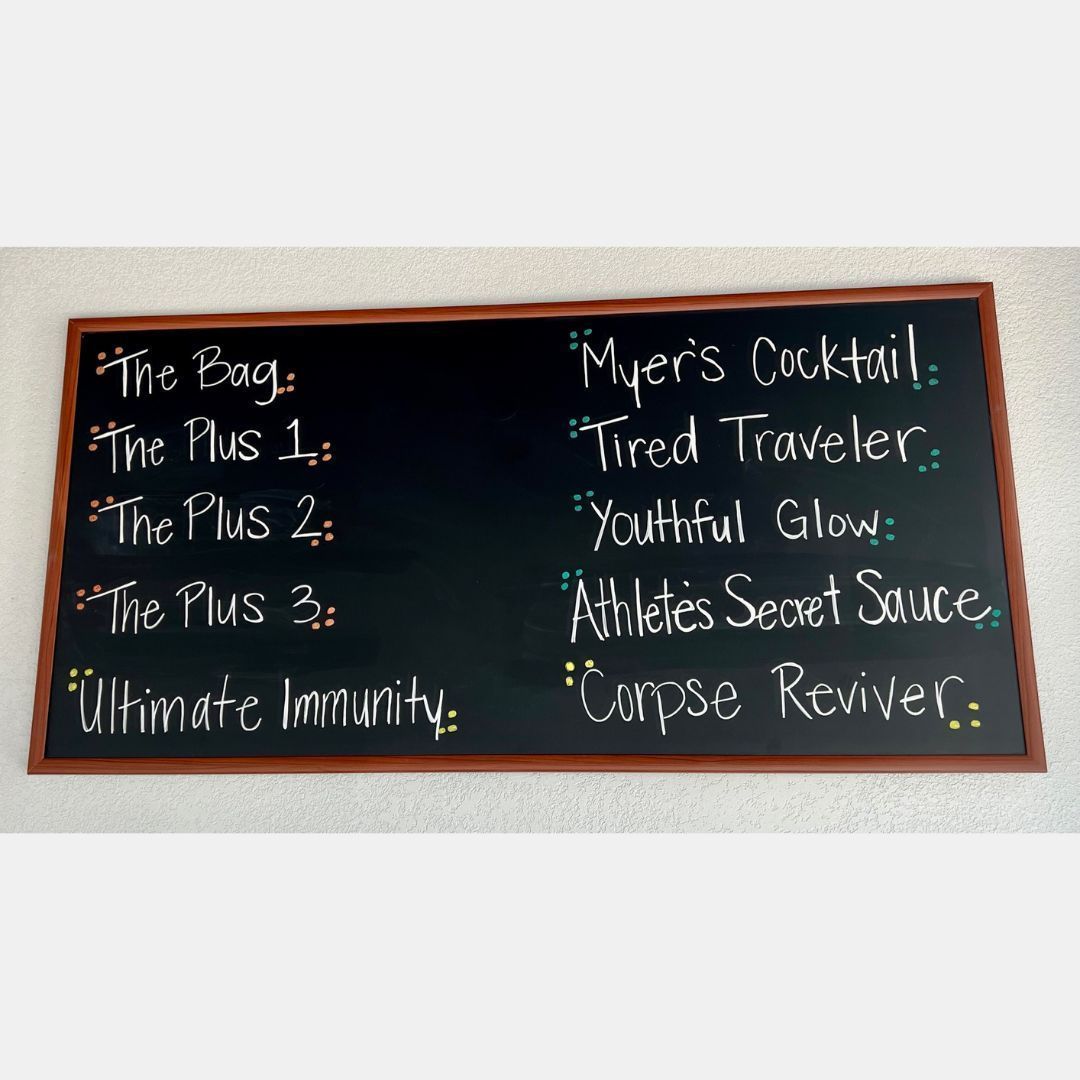 The Bag
The Plus 1
The Plus 2
The Plus 3
Ultimate Immunity
Myer's Cocktail
Tired Traveler
Youthful Glow
Athlete's Secret Sauce
Corpse Reviver